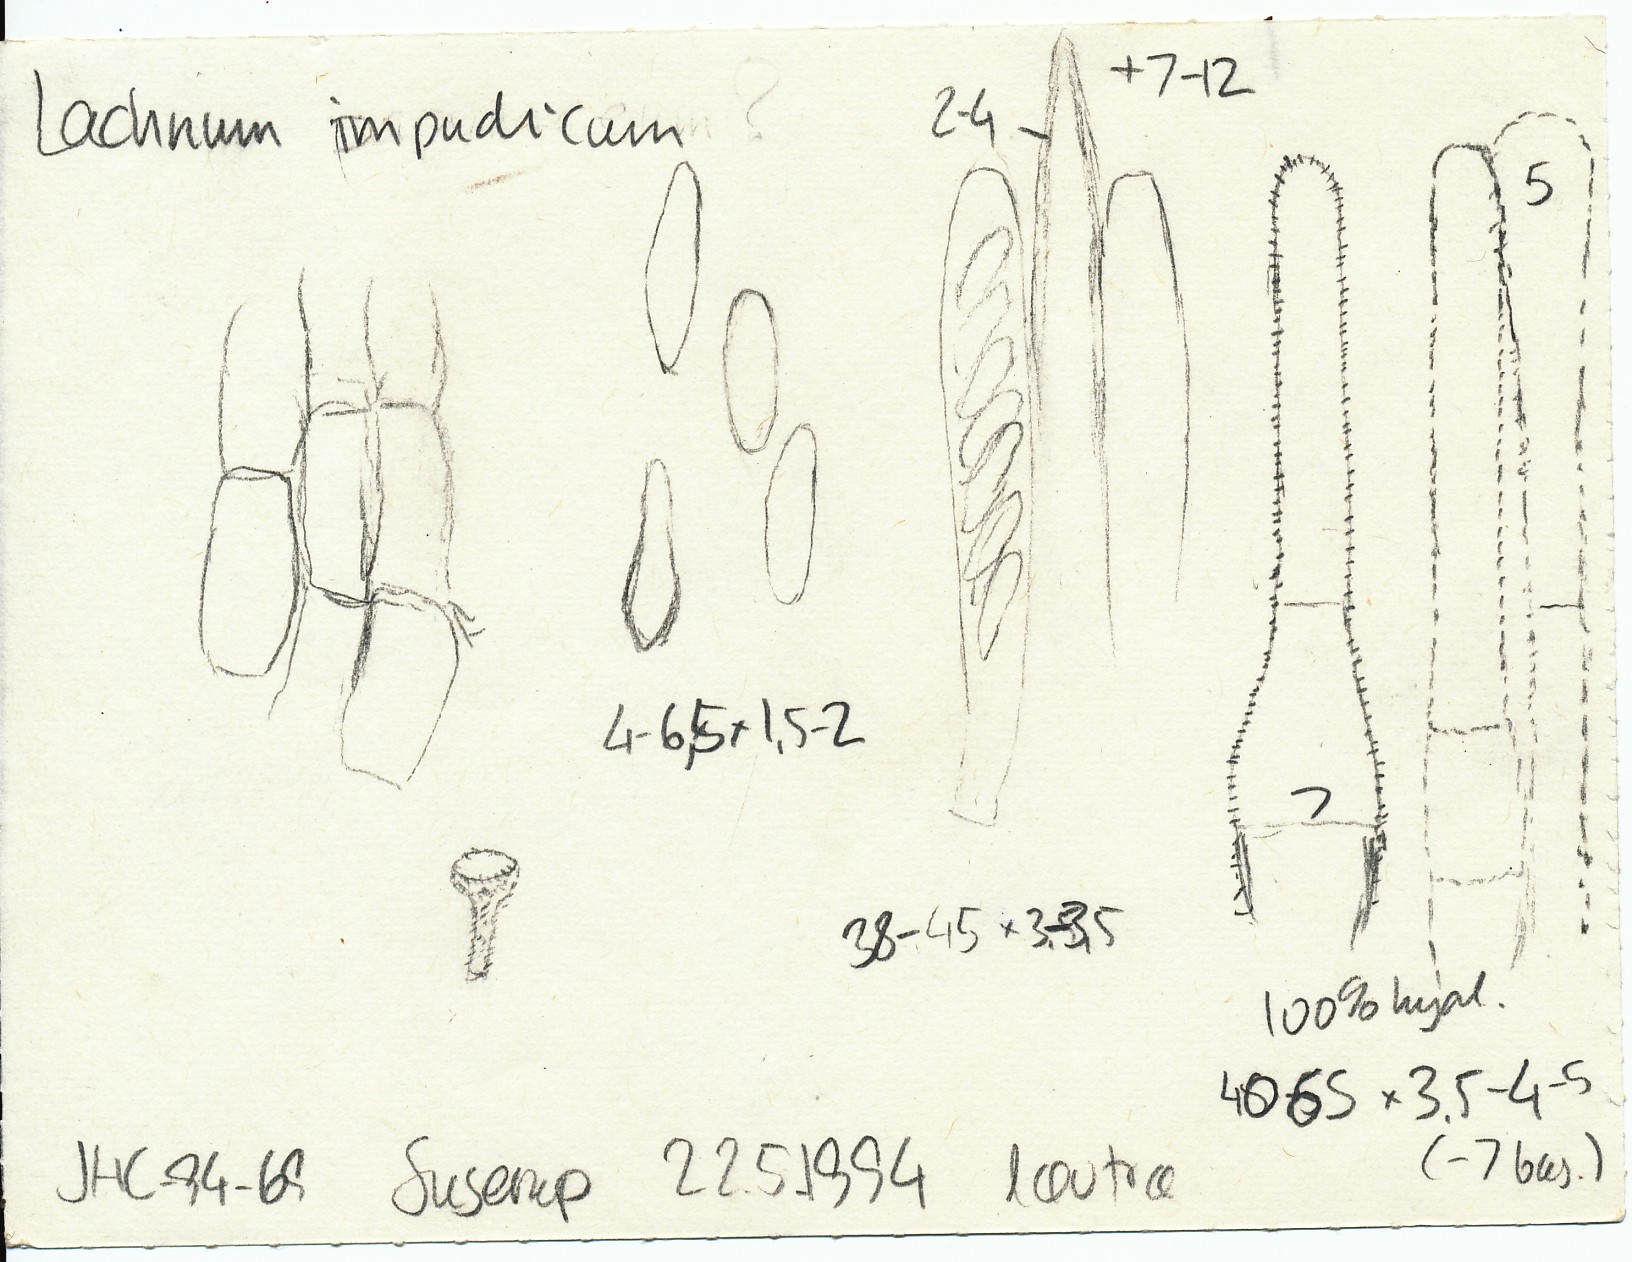 Lachnum impudicum ?
2-4
+7-12
5
4-6,5×1,5-2
7
38-45×3-3,5
100% hyal.
40-65×3.5-4-5
(-7 bas.)
JHC-94-69 Suserup 22.5.1994 løvtræ